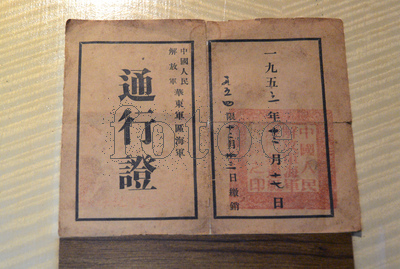 中國人民
解放軍
華東軍區海軍
通行證
一九五三年十二月十七日
限十二月 日繳銷
中國人民
fotoe